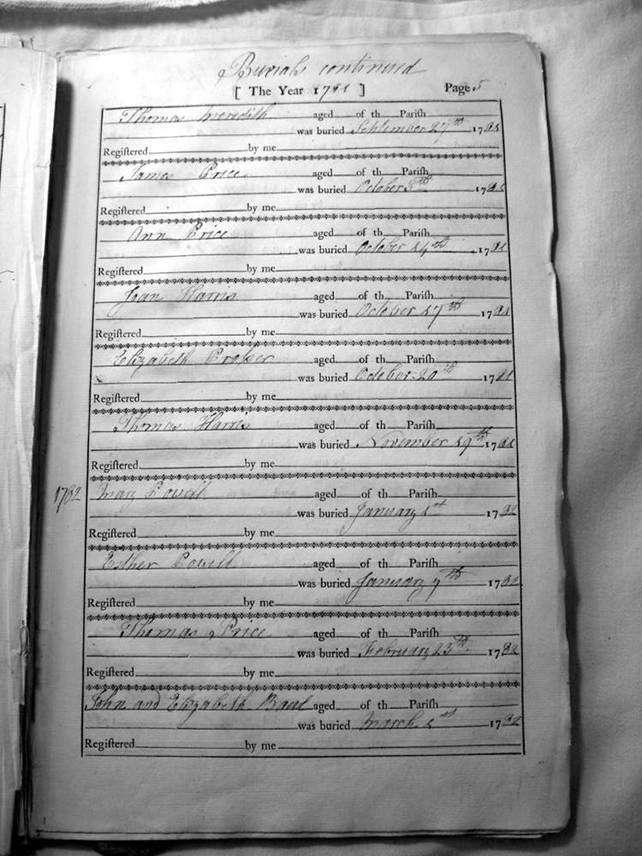 Burials continued
[ The Year 1781 ] Page 5
Thomas Meredith aged of th Pariſh
was buried September 27th 1781
Regiſtered by me
James Price aged of th Pariſh
was buried October 1781
Regiſtered by me
Ann Price aged of th Pariſh
was buried October 24th 1781
Regiſtered by me
Joan Harris aged of th Pariſh
was buried October 27th 1781
Regiſtered by me
Elizabeth Prosser aged of th Pariſh
was buried October 1781
Regiſtered by me
Thomas Harris aged of th Pariſh
was buried November 29th 1781
Regiſtered by me
1782 Mary Powell aged of th Pariſh
was buried January 1st 1782
Regiſtered by me
Esther Powell aged of th Pariſh
was buried January 7th 1782
Regiſtered by me
Thomas Price aged of th Pariſh
was buried February 23th 1782
Regiſtered by me
John and Elizabeth aged of th Pariſh
was buried March 1st 1782
Regiſtered by me